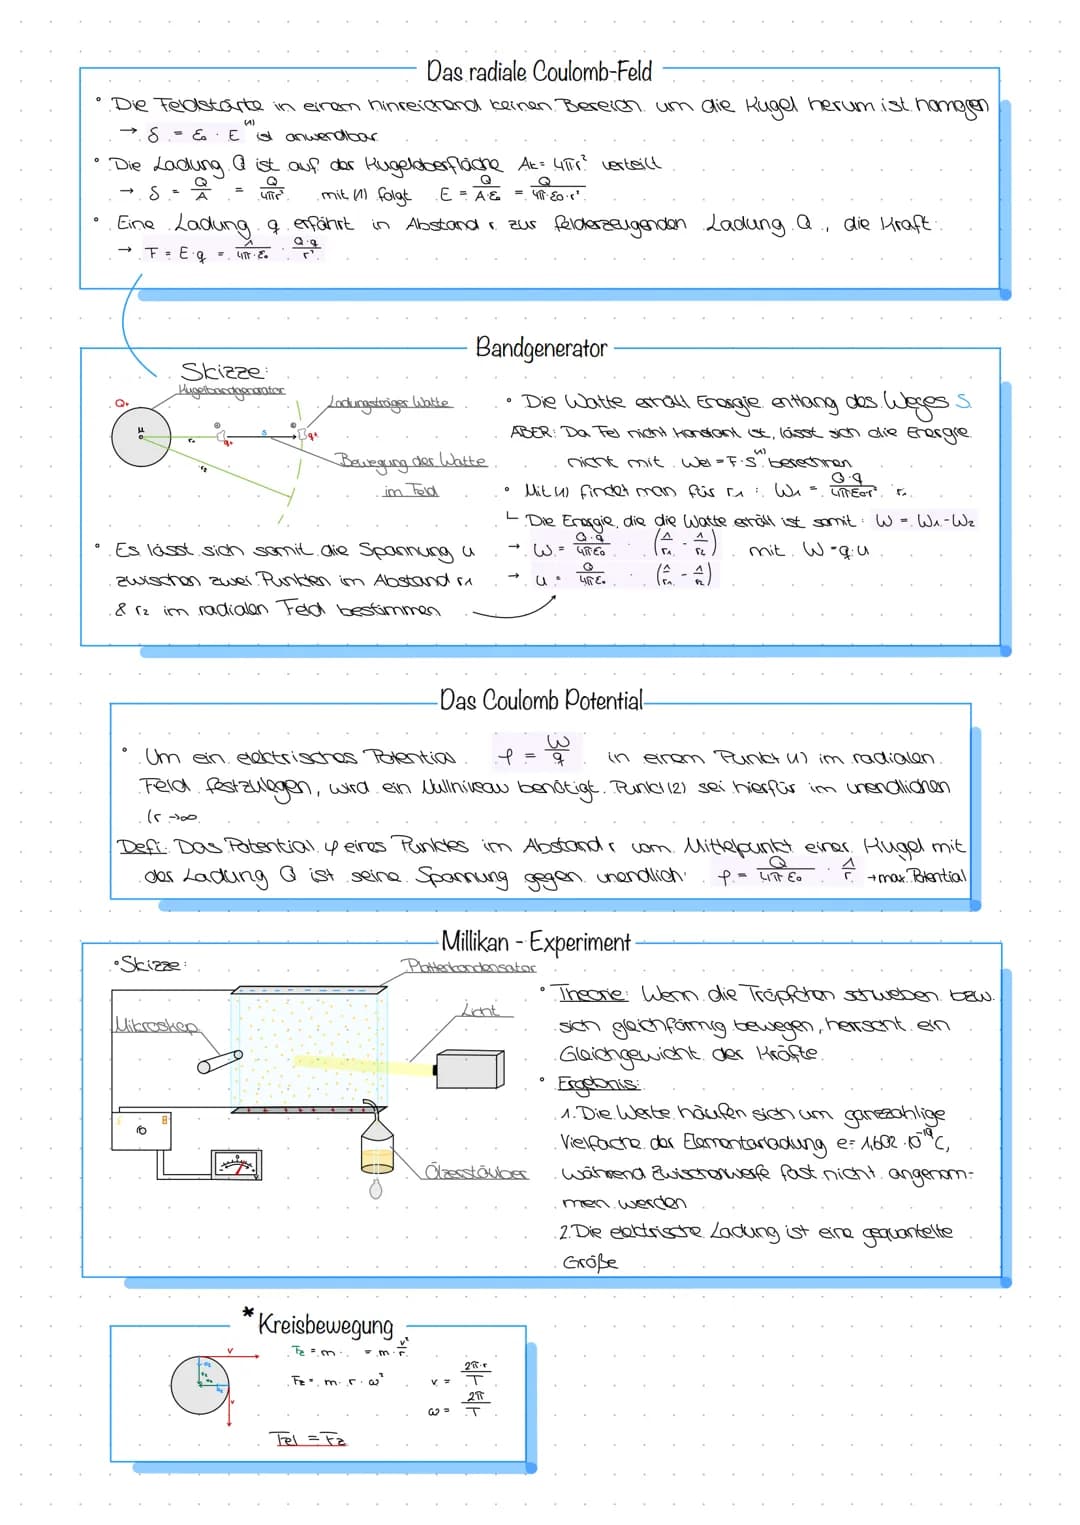 Das radiale Coulomb-Feld
• Die Feldstärke in einem hinreichend kleinen Bereich um die Kugel herum ist homogen
→ δ = ε₀ · E ⁽¹⁾ ist anwendbar
• Die Ladung Q ist auf der Kugeloberfläche Aₖ = 4πr² verteilt
→ δ = Q/A = Q/4πr² mit (1) folgt E = Q/A·ε₀ = Q/4π·ε₀·r²
• Eine Ladung q erfährt in Abstand r zur felderzeugenden Ladung Q, die Kraft:
→ F = E·q = 1/4π·ε₀ · Q·q/r²
Bandgenerator
Skizze:
Kugelbandgenerator
Q+
M
r₁
r₂
q+
s
q+
Ladungsträger Watte
Bewegung der Watte
im Feld
• Die Watte erhält Energie entlang des Weges S.
ABER: Da Fel nicht konstant ist, lässt sich die Energie
nicht mit Wel = F·S ⁽¹⁾ berechnen
• Mit (1) findet man für r₁ : W₁ = Q·q/4πε₀r² · r₁
└ Die Energie, die die Watte erhält ist somit: W = W₁-W₂
→ W = Q·q/4πε₀ · (1/r₁ - 1/r₂) mit W=q·u
→ u = Q/4πε₀ · (1/r₁ - 1/r₂)
• Es lässt sich somit die Spannung u
zwischen zwei Punkten im Abstand r₁
& r₂ im radialen Feld bestimmen
Das Coulomb Potential
• Um ein elektrisches Potential φ = W/q in einem Punkt (1) im radialen
Feld festzulegen, wird ein Nullniveau benötigt. Punkt (2) sei hierfür im unendlichen
(r→∞
Defi: Das Potential φ eines Punktes im Abstand r vom Mittelpunkt einer Kugel mit
der Ladung Q ist seine Spannung gegen unendlich: φ = Q/4πε₀ · 1/r →max. Potential
Millikan - Experiment
•Skizze:
Plattenkondensator
Mikroskop
Licht
Ölzerstäuber
• Theorie: Wenn die Tröpfchen schweben bzw.
sich gleichförmig bewegen, herrscht ein
Gleichgewicht der Kräfte.
• Ergebnis:
1. Die Werte häufen sich um ganzzahlige
Vielfache der Elementarladung e = 1,602·10⁻¹⁹C,
während Zwischenwerte fast nicht angenom-
men werden
2. Die elektrische Ladung ist eine gequantelte
Größe
* Kreisbewegung
v
v
Fz = m · = m · v²/r
Fz = m · r · ω²
v = 2π·r/T
ω = 2π/T
Fel = Fz